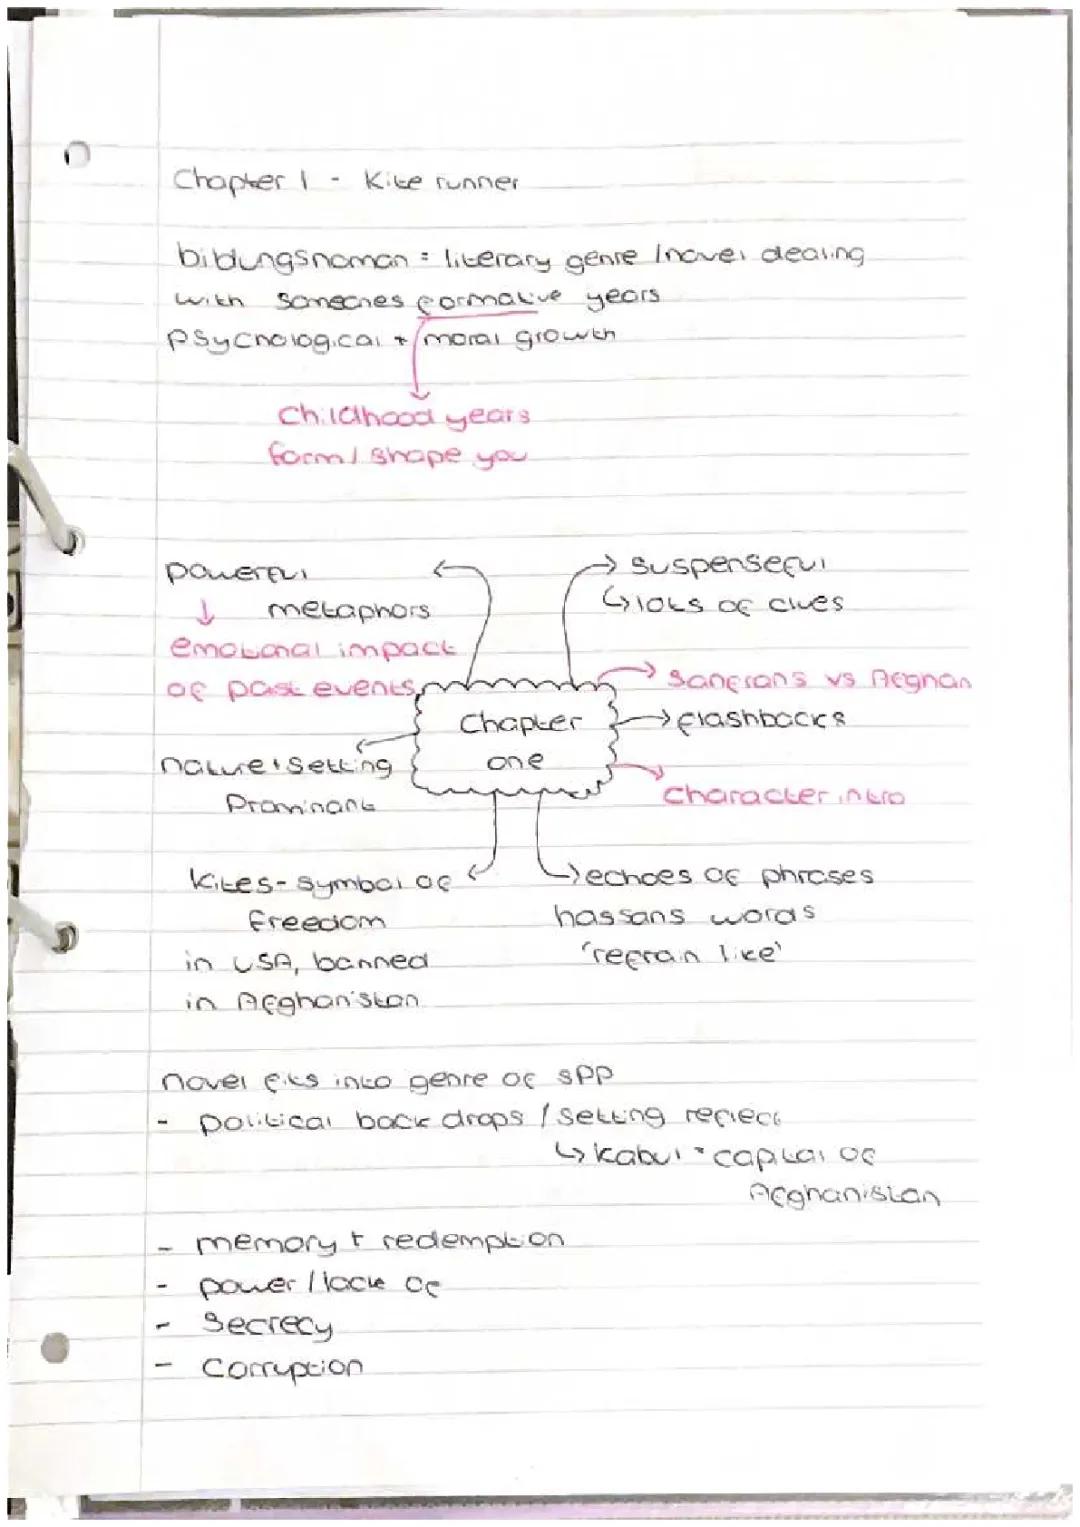 Chapter 1 - Kite runner
bildungsnoman = literary genre / novel dealing
with someones formative years
psychological + moral growth
Childhood years
form / shape you
powerful
metaphors
emotional impact
of past events
suspenseful
↳ lots of clues
Sanfrans vs Afghan
flashbacks
Character intro
Chapter
one
nature + setting
Prominant
kites - symbol of
freedom
in USA, banned
in Afghanistan
echoes of phrases
hassans words
'refrain like'
novel fits into genre of SPP
- political back drops / setting reflect
↳ Kabul = capital of
Afghanistan
- memory + redemption
- power / lack of
- Secrecy
- Corruption